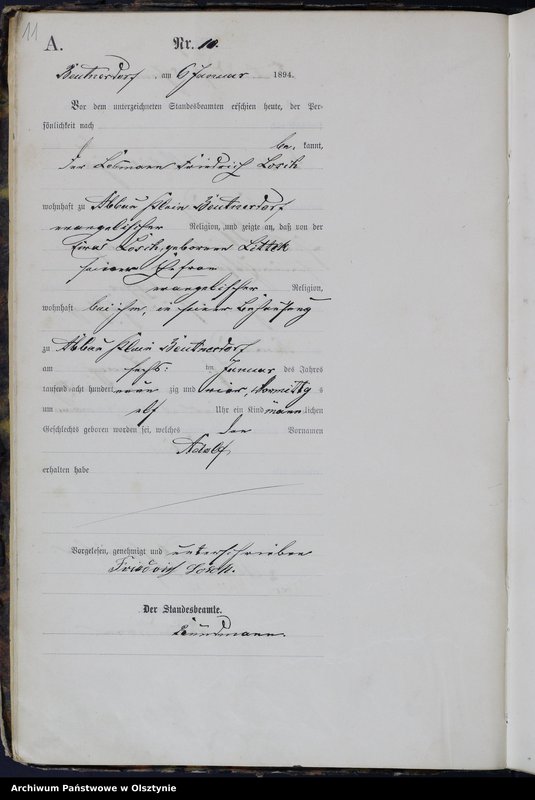 11
A.
Nr. 10.
Beutnerdorf, am 6 Januar 1894.
Vor dem unterzeichneten Standesbeamten erschien heute, der Per-
sönlichkeit nach
be. kannt,
der Losmann Friedrich Losch
wohnhaft zu Abbau Klein Beutnerdorf
evangelischer Religion, und zeigte an, daß von der
Losch, geborenen Littek
seiner Ehefrau
evangelischer Religion,
wohnhaft bei ihm, in seiner Behausung
zu Abbau Klein Beutnerdorf
am sechs: ten Januar des Jahres
tausend acht hundert neun zig und vier, Vormittag s
um elf Uhr ein Kind männ lichen
Geschlechts geboren worden sei, welches den Vornamen
Adolf
erhalten habe
Vorgelesen, genehmigt und unterschrieben
Friedrich Losch.
Der Standesbeamte.
Archiwum Państwowe w Olsztynie